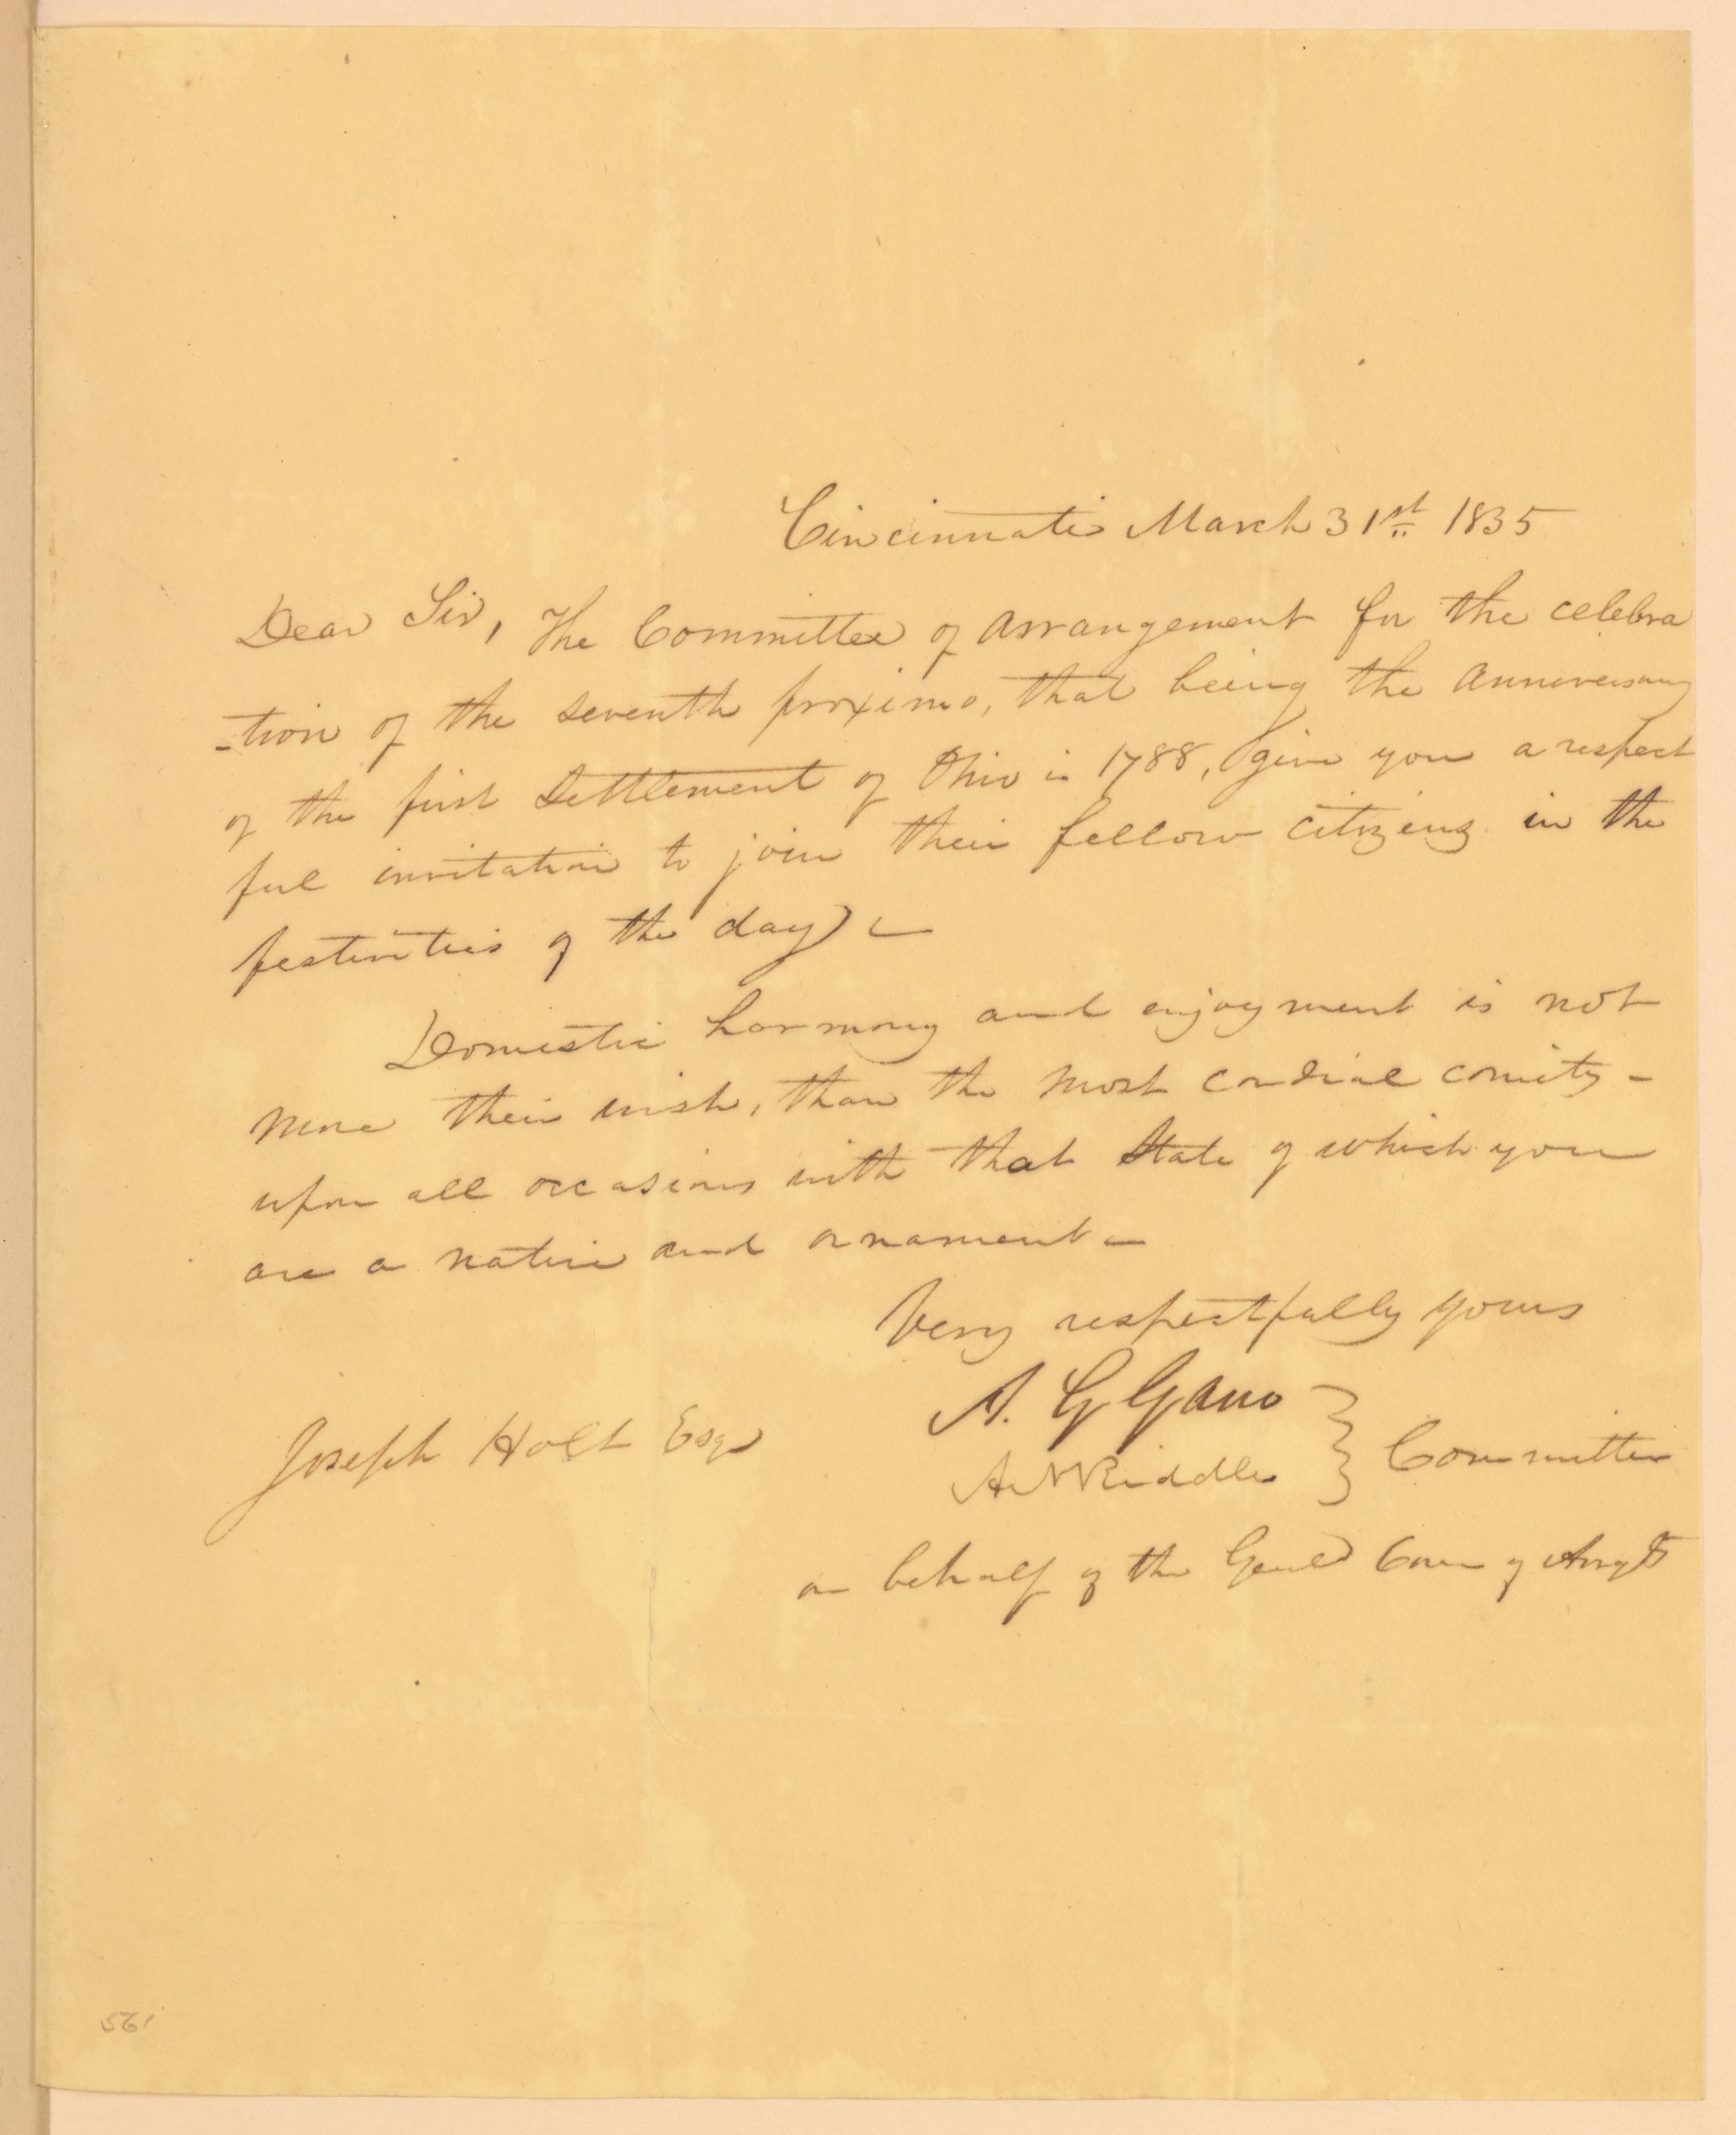 Cincinnati March 31st 1835
Dear Sir, The Committee of Arrangement for the celebra
-tion of the seventh proximo, that being the anniversary
of the first settlement of Ohio in 1788, give you a respect
ful invitation to join their fellow citizens in the
festivities of the day) —
Domestic harmony and enjoyment is not
more their wish, than the most cordial comity -
upon all occasions with that State of which you
are a native and ornament —
Very respectfully yours
A. G Gano
Joseph Holt Esqr
A N Riddle } Committee
on behalf of the Genl Com of Arrgt
561